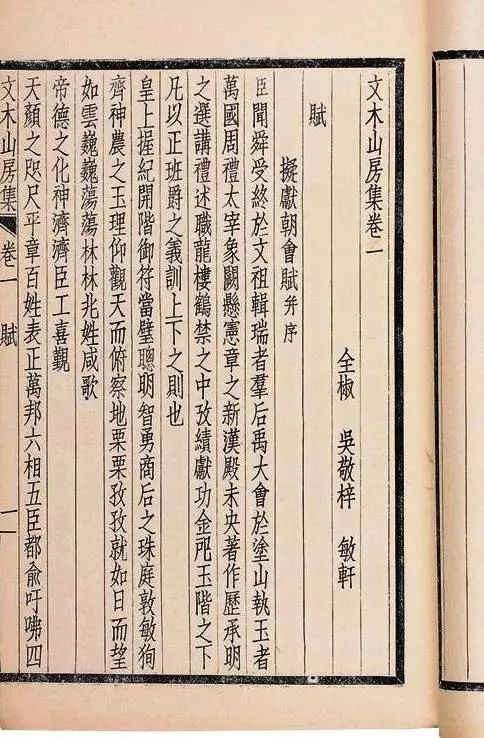 文木山房集卷一
全椒　吳敬梓　敏軒
賦
擬獻朝會賦并序
臣聞舜受終於文祖輯瑞者羣后禹大會於塗山執玉者
萬國周禮太宰象闕懸憲章之新漢殿未央著作歷承明
之選講禮述職龍樓鶴禁之中攷績獻功金戺玉階之下
凡以正班爵之義訓上下之則也
皇上握紀開階御符當璧聰明智勇商后之珠庭敦敏徇
齊神農之玉理仰觀天而俯察地栗栗孜孜就如日而望
如雲巍巍蕩蕩林林兆姓咸歌
帝德之化神濟濟臣工喜觀
天顏之咫尺平章百姓表正萬邦六相五臣都俞吁咈四
文木山房集　卷一　賦　一